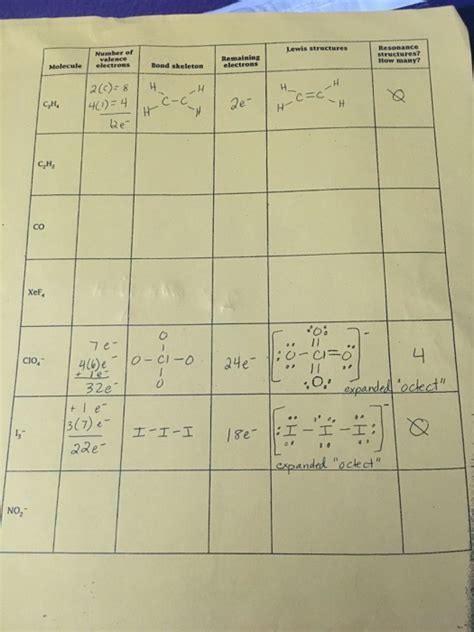 Molecule
Number of
valence
electrons
Bond skeleton
Remaining
electrons
Lewis structures
Resonance
structures?
How many?
C₂H₄
2(C)= 8
4(1)= 4
12e⁻
H H
C-C
H H
2e⁻
H H
C=C
H H
Ø
C₂H₂
CO
XeF₄
ClO₄⁻
7 e⁻
4(6)e⁻
+ 1e⁻
32e⁻
O
O-Cl-O
O
24e⁻
O
O-Cl=O
O
-
expanded "octect"
4
I₃⁻
+ 1 e⁻
3(7) e⁻
22e⁻
I-I-I
18e⁻
I-I-I
-
expanded "octect"
Ø
NO₂⁻